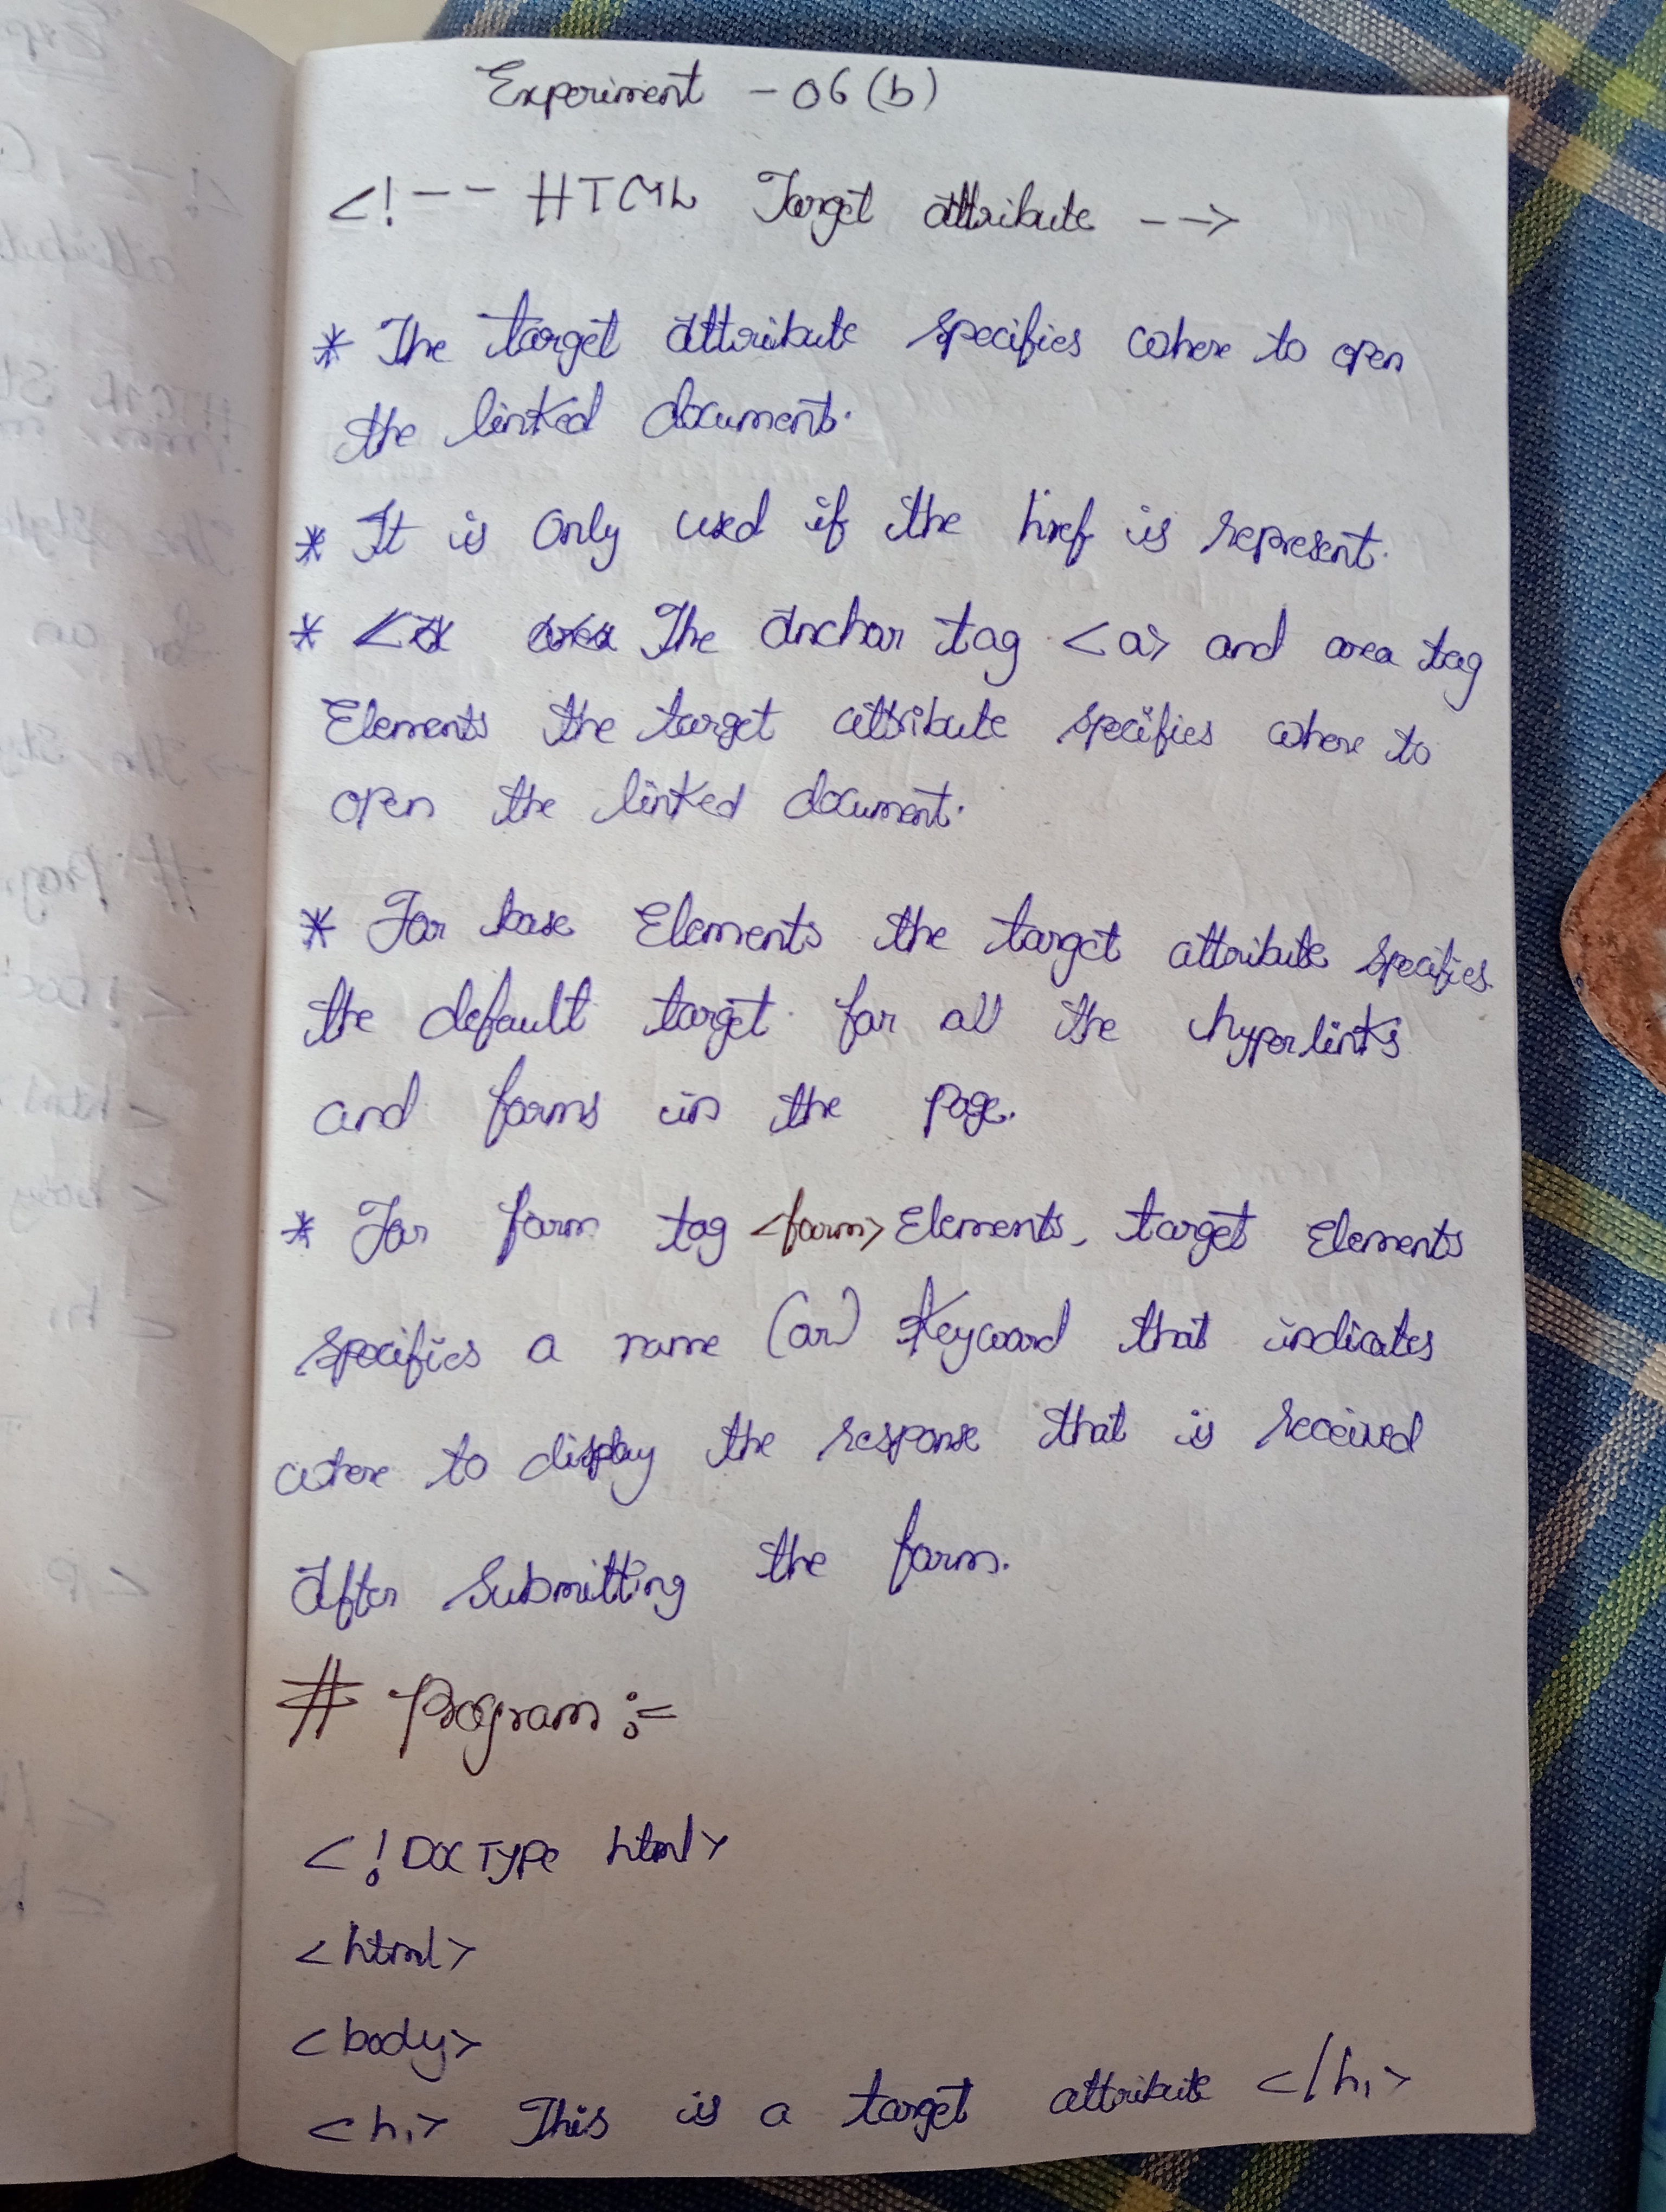 Experiment - 06 (b)
<!-- HTML Target attribute -->
* The target attribute specifies where to open
the linked document.
* It is only used if the href is represent.
* The anchor tag <a> and area tag
Elements the target attribute specifies where to
open the linked document.
* For base Elements the target attribute specifies
the default target for all the hyperlinks
and forms in the page.
* For form tag <form> Elements, target Elements
specifies a name (or) Keyword that indicates
where to display the response that is received
After submitting the form.
# Program :-
<!DOCTYPE html>
<html>
<body>
<h1> This is a target attribute </h1>